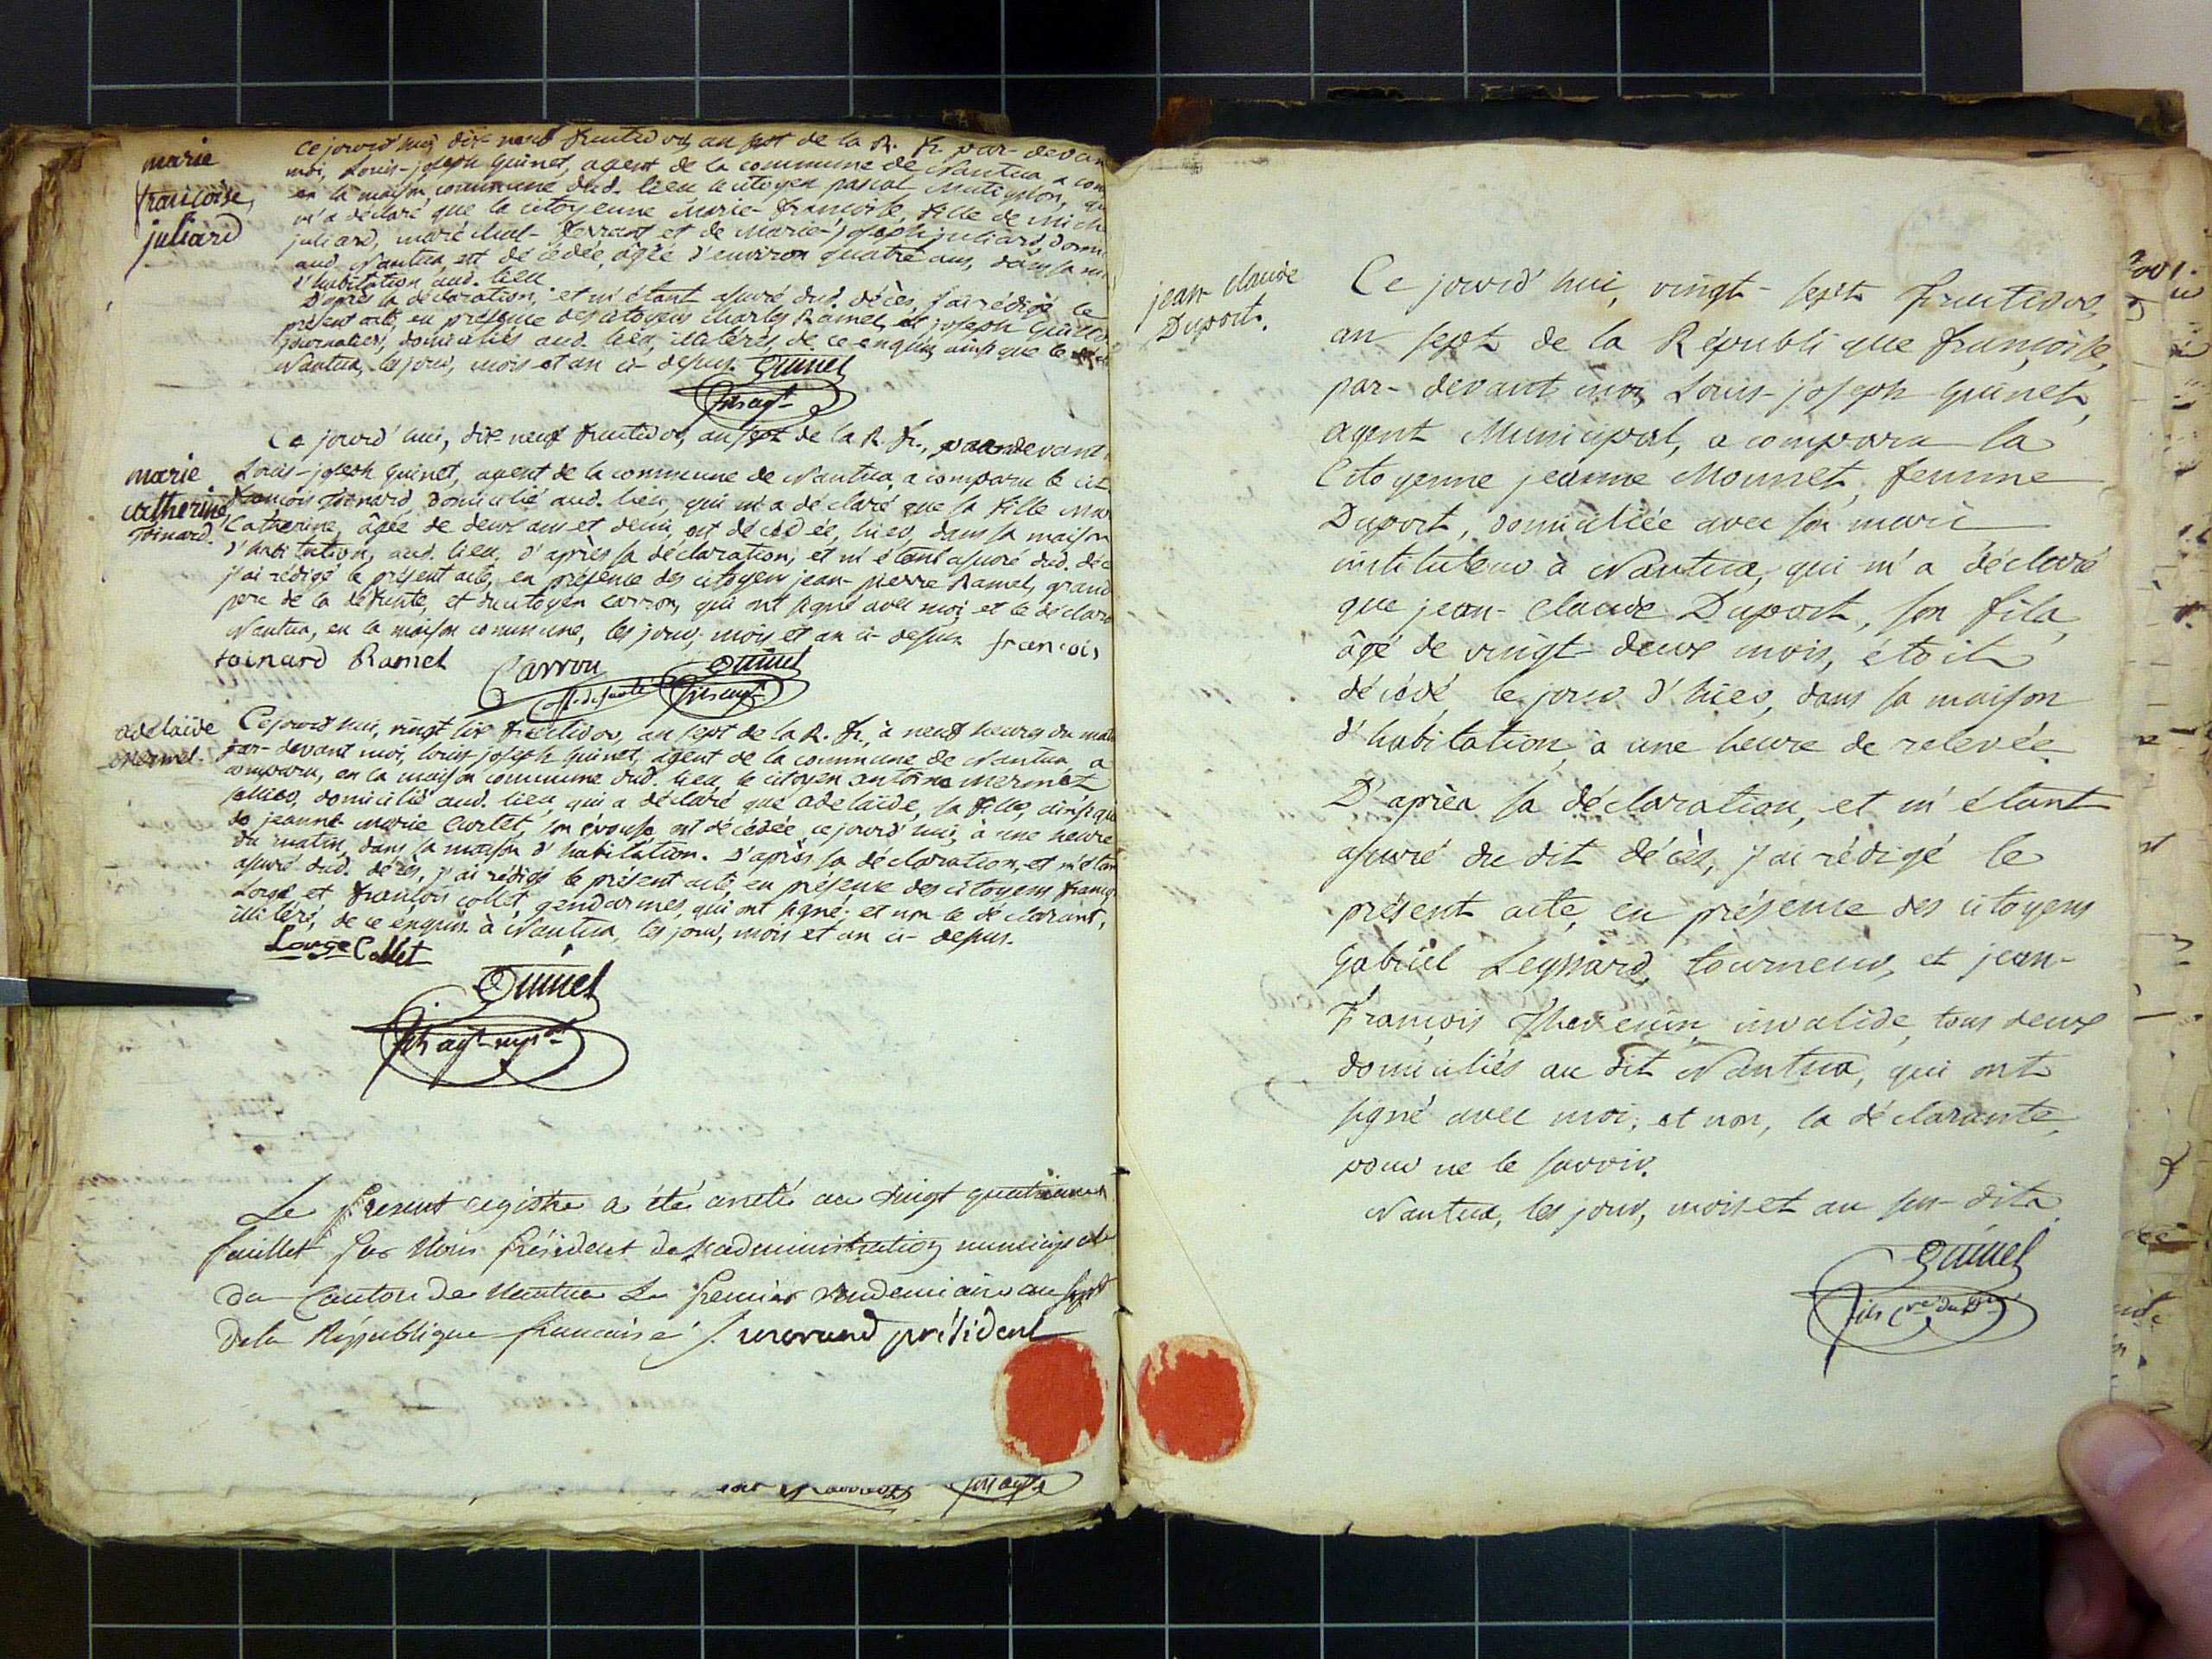 marie
françoise
juliard
Ce jourd'hui dix-neuf fructidor, an sept de la R. fr. par-devan
moi, Louis-joseph Guinet, agent de la commune de Nantua, a com
en la maison commune dud. lieu le citoyen pascal
m'a déclaré que la citoyenne Marie-françoise, fille de Mich
juliard, maréchal-ferrant et de Marie-joseph juliard, domi
aud. Nantua, est décédée, âgée d'environ quatre ans, dans sa m
d'habitation aud. lieu
D'après la déclaration, et m'étant assuré dud. décès, j'ai rédigé le
présent acte, en présence des citoyens charles Ramel, et joseph
journaliers, domiciliés aud. lieu, illitérés, de ce enquis, ainsi que le
Nantua, les jour, mois et an ci-dessus. Guinet
fils agt
marie
catherine
toinard.
Ce jourd'hui, dix-neuf fructidor, an sept de la R. fr., par-devant
Louis-joseph Guinet, agent de la commune de Nantua, a comparu le cit.
françois toinard, domicilié aud. lieu, qui m'a déclaré que sa fille Mar
Catherine, âgée de deux ans et demi, est décédée, hier, dans sa maison
d'habitation, aud. lieu, d'après sa déclaration, et m'étant assuré dud. déc
j'ai rédigé le présent acte, en présence des citoyens jean-pierre Ramel, grand
pere de la défunte, et du citoyen Carron, qui ont signé avec moi et le déclara
Nantua, en la maison commune, les jour, mois et an ci-dessus françois
toinard Ramel Carron Guinet
of. de santé fils agt
adelaïde
Mermet.
Ce jourd'hui, vingt six fructidor, an sept de la R. fr., à neuf heures du mat
par-devant moi, louis-joseph Guinet, agent de la commune de Nantua, a
comparu, en la maison commune dud. lieu, le citoyen antoine mermet
sellier, domicilié aud. lieu, qui a déclaré que adelaïde, sa fille, ainsi que
de jeanne marie Curtet, son épouse, est décédée, ce jourd'hui, à une heure
du matin, dans sa maison d'habitation. D'après sa déclaration, et m'étan
assuré dud. décès, j'ai rédigé le présent acte, en présence des citoyens franç
Longe et françois collet gendarmes, qui ont signé; et non le déclarant,
illitéré, de ce enquis. à Nantua, les jour, mois et an ci-dessus.
Longe Collet
Guinet
fils agt mpal
Le present registre a été arreté au vingt quatrieme
feuillet par Nous président de l'administration municipale
du Canton de Nantua Le premier vendemiaire an sept
de la République française J. morand président
fils agt
jean claude
Duport.
Ce jourd'hui, vingt-sept fructidor,
an sept de la République françoise,
par-devant moi, Louis-joseph Guinet,
agent Municipal, a comparu la
Citoyenne jeanne Monnet, femme
Duport, domiciliée avec son mari
instituteur à Nantua, qui m'a déclaré
que jean-Claude Duport, son fils,
âgé de vingt-deux mois, étoit
décédé, le jour d'hier, dans sa maison
d'habitation, à une heure de relevée.
D'après sa déclaration, et m'étant
assuré du dit décès, j'ai rédigé le
présent acte, en présence des citoyens
Gabriel Leyssard, tourneur, et jean-
François Thevenin, invalide, tous deux
domiciliés au dit Nantua, qui ont
signé avec moi; et non, la déclarante,
pour ne le savoir.
Nantua, les jour, mois et an sus-dits.
Guinet